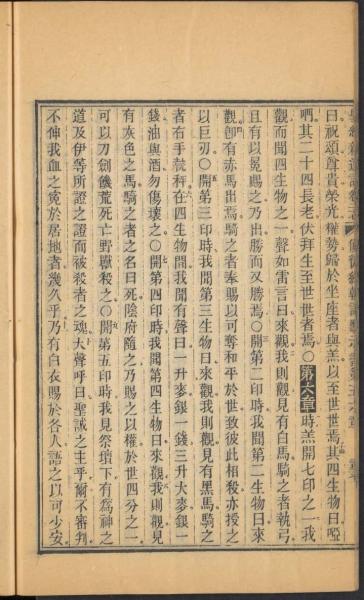 曰祝頌尊貴榮光權勢歸於坐座者與羔以至世世焉其四生物曰啞
嗎其二十四長老伏拜生至世世者焉○第六章時羔開七印之一我
觀而聞四生物之一聲如雷言曰來觀我則觀見有白馬騎之者執弓
且有以冕賜之乃出勝而又勝焉○開第二印時我聞第二生物曰來
觀卽有赤馬出焉騎之者奉賜以可奪和平於世致彼此相殺亦授之
以巨刃○開第三印時我聞第三生物曰來觀我則觀有黑馬騎之
者右手執秤在四生物間我聞有聲曰一升麥銀一錢三升大麥銀一
錢油與酒勿傷壞之○開第四印時我聞第四生物曰來觀我則觀見
有灰色之馬騎之者之名曰死陰府隨之乃賜之以權於世四分之一
可以刀劍饑荒死亡野獸殺之○開第五印時我見祭壇下有爲神之
道及伊等所證之證而被殺者之魂大聲呼曰聖誠之主乎爾不審判
不伸我血之冤於居地者幾久乎乃有白衣賜於各人語之以可少安